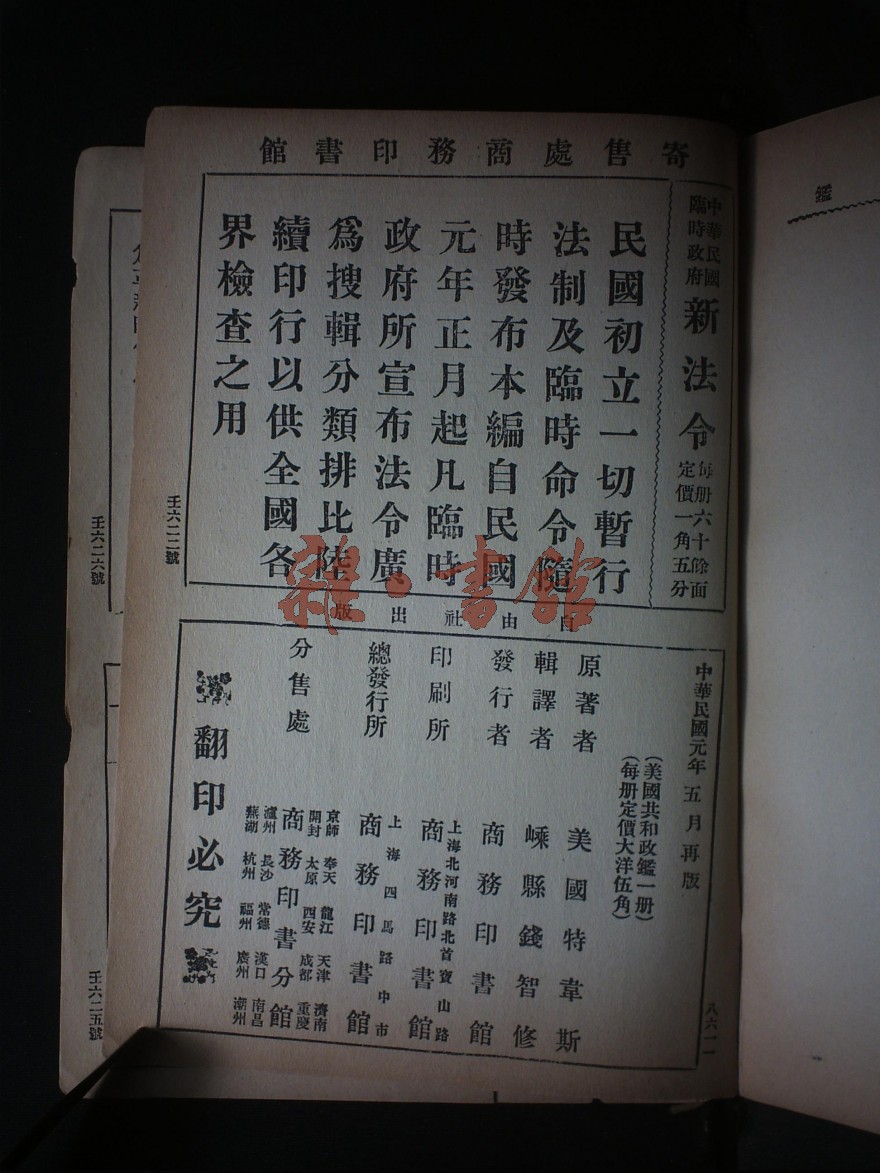 寄售處商務印書館
中華民國
臨時政府
新法令
每册六十餘面
定價一角五分
民國初立一切暫行
法制及臨時命令隨
時發布本編自民國
元年正月起凡臨時
政府所宣布法令廣
爲搜輯分類排比陸
續印行以供全國各
界檢查之用
壬六二二號
自由社出版
中華民國元年五月再版
(美國共和政鑑一册)
(每册定價大洋伍角)
原著者 美國特韋斯
輯譯者 嵊縣錢智修
發行者 商務印書館
印刷所 上海北河南路北首寶山路
商務印書館
總發行所 上海四馬路中市
商務印書館
分售處
京師 奉天 龍江 天津 濟南
開封 太原 西安 成都 重慶
商務印書分館
瀘州 長沙 常德 漢口 南昌
蕪湖 杭州 福州 廣州 潮州
翻印必究
八六一一
壬六二六號
壬六二五號
鑑
雜·書館